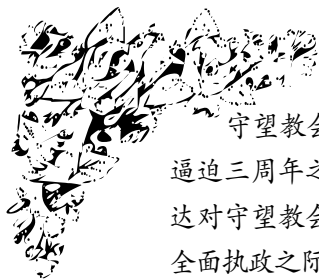 守望教会
逼迫三周年之
达对守望教会
全面执政之际